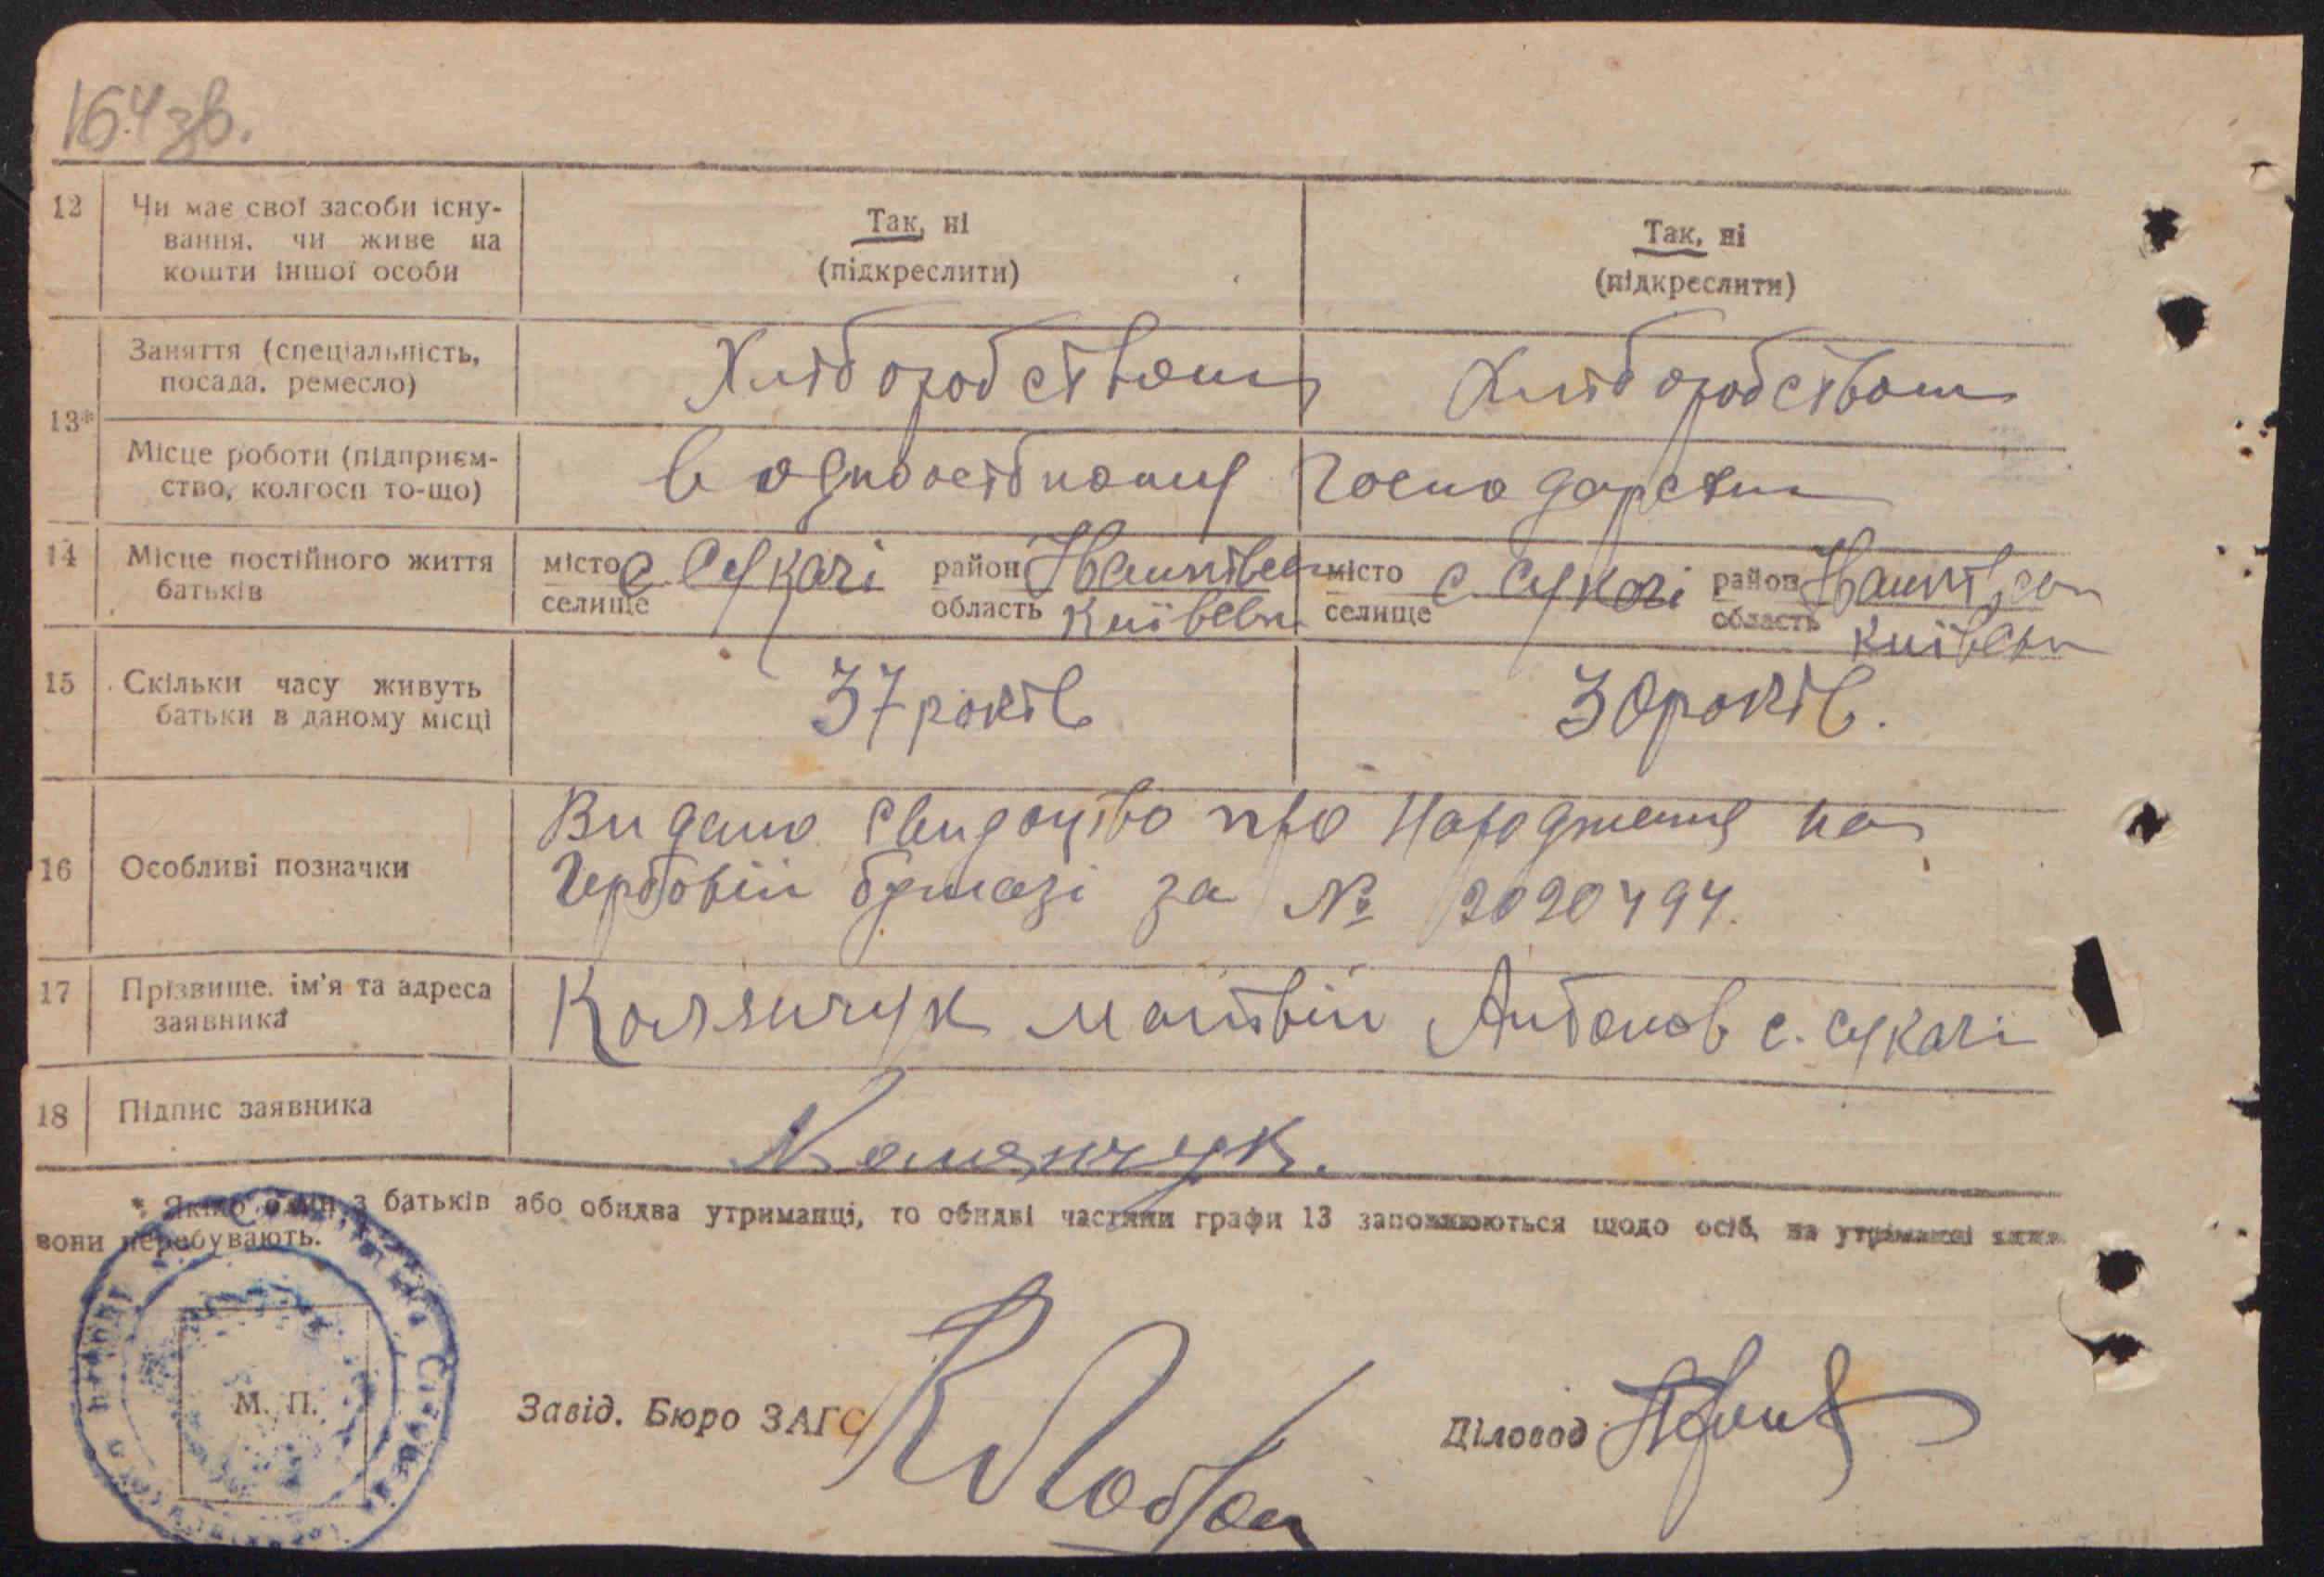 164зв.
12 Чи має свої засоби існу-
вання, чи живе на
кошти іншої особи
Так, ні
(підкреслити)
Так, ні
(підкреслити)
13*
Заняття (спеціальність,
посада, ремесло)
Хлібородством
Хлібородством
Місце роботи (підприєм-
ство, колгосп то-що)
в одноосібному господарстві
14 Місце постійного життя
батьків
місто с Сукачі район
селище область Київськ
місто с. Сукачі район
селище область Київськ
15 Скільки часу живуть
батьки в даному місці
37 років
30 років.
16 Особливі позначки
Видано свидоцтво про народження на
Гербовій бумазі за № 2020494.
17 Прізвище, ім'я та адреса
заявника
Матвій с. Сукачі
18 Підпис заявника
* Якщо один з батьків або обидва утриманці, то обидві частини графи 13 заповнюються щодо осіб, на утриманні яких
вони перебувають.
М. П.
Завід. Бюро ЗАГС
Діловод